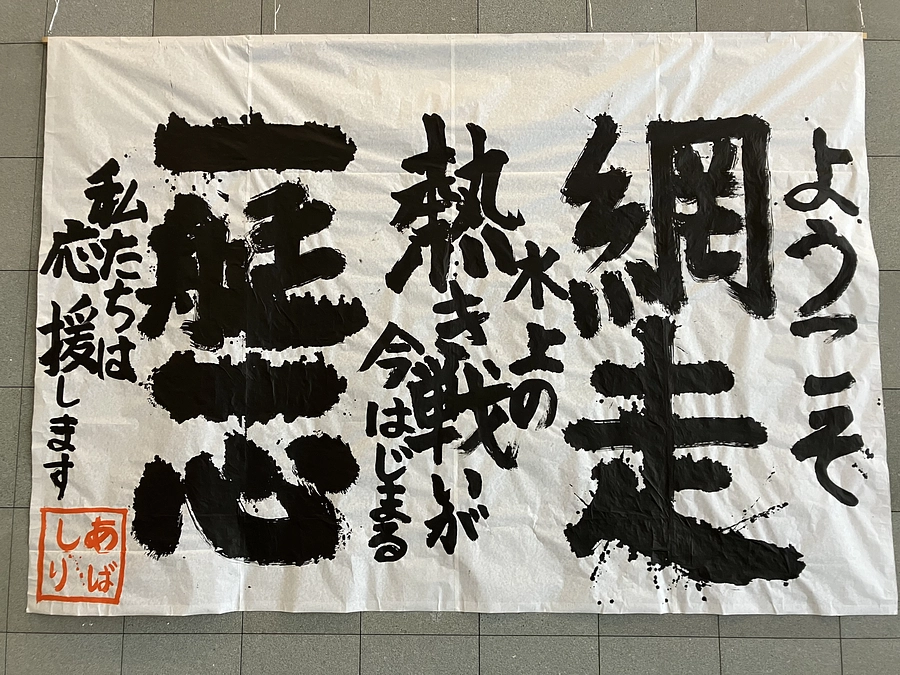 ようこそ
網走
水上の
熱き戦いが
今はじまる
一艇一心
私たちは
応援します
あば
しり